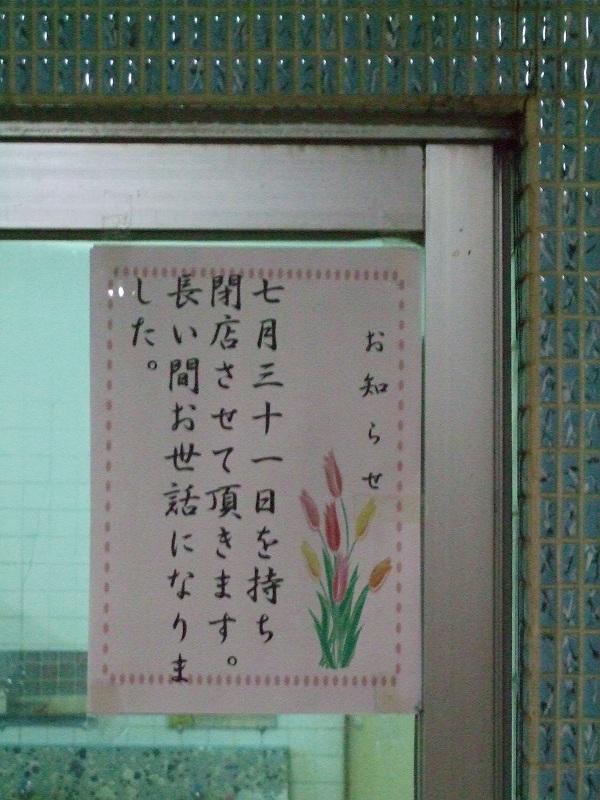 お知らせ
七月三十一日を持ち
閉店させて頂きます。
長い間お世話になりま
した。